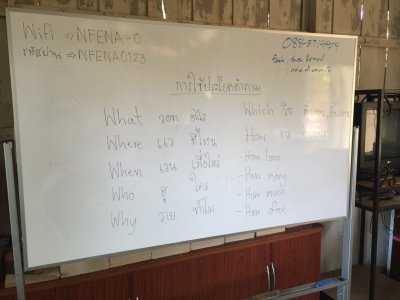 Wifi ⇒ NFENA-0
รหัสผ่าน ⇒ NFENA0123
การใช้ประโยคคำถาม
What วอท อะไร
Where แว ที่ไหน
When เวน เมื่อไหร่
Who ฮู ใคร
Why วาย ทำไม
Which วิช
How ฮาว
- How long
- How many
- How much
- How often